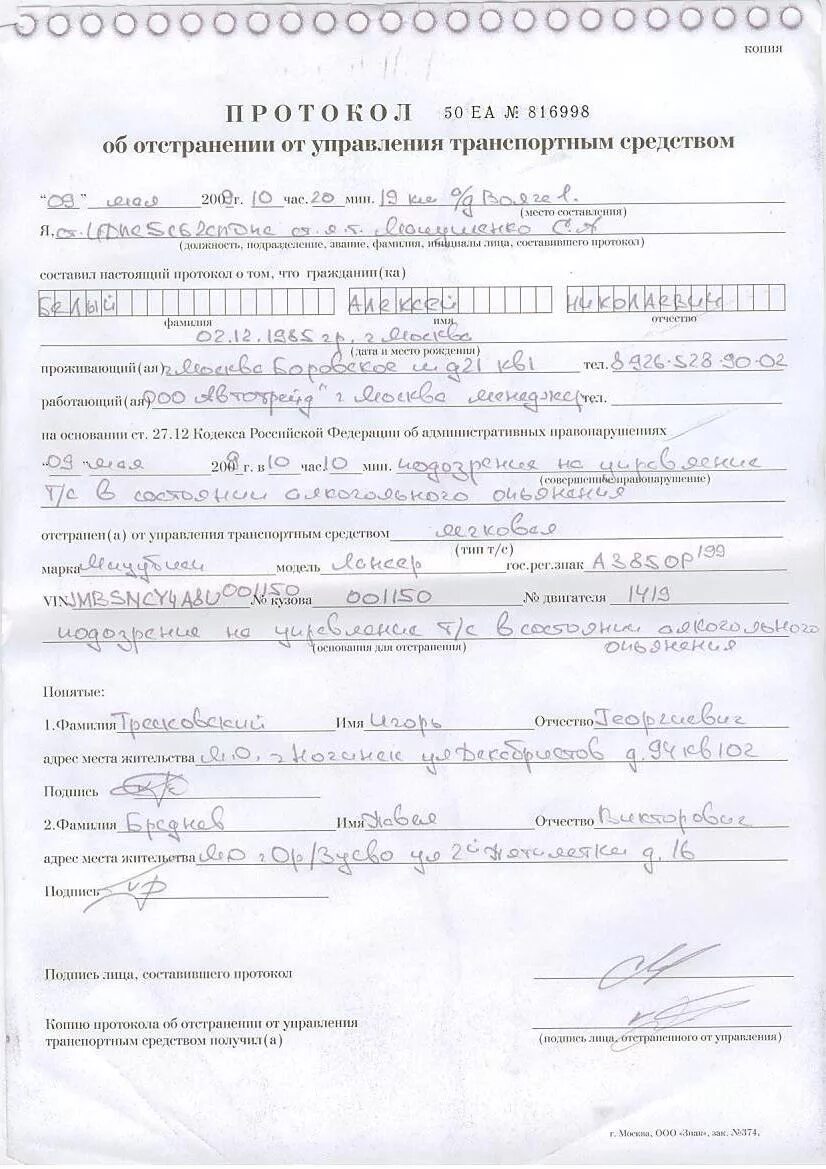 копия
ПРОТОКОЛ 50 ЕА № 816998
об отстранении от управления транспортным средством
"09" мая 2009г. 10 час. 20 мин. 19 км а/д Волга 1.
(место составления)
Я, ст. С.А
(должность, подразделение, звание, фамилия, инициалы лица, составившего протокол)
составил настоящий протокол о том, что гражданин(ка)
БЕЛЫЙ АЛЕКСЕЙ НИКОЛАЕВИЧ
фамилия имя отчество
02.12.1985 гр. г Москва
(дата и место рождения)
проживающий(ая) г Москва Боровское ш д21 кв1 тел. 8926-528-90-02
работающий(ая) ООО Автотрейд" г Москва менеджер тел.
на основании ст. 27.12 Кодекса Российской Федерации об административных правонарушениях
"09" мая 2009г. в 10 час 10 мин. подозрение на управление
(совершенные правонарушение)
т/с в состоянии алкогольного опьянения
отстранен(а) от управления транспортным средством легковая
(тип т/с)
марка Мицубиси модель Лансер гос.рег.знак А385ОР199
VIN JMBSNCY4A8U001150 № кузова 001150 № двигателя 1419
подозрение на управление т/с в состоянии алкогольного
(основания для отстранения) опьянения
Понятые:
1.Фамилия Имя Игорь Отчество Георгиевич
адрес места жительства М.О. г Ногинск ул Декабристов д.94 кв 102
Подпись
2.Фамилия Бреднев Имя Павел Отчество Викторович
адрес места жительства МО г Ор/Зуево ул 2й Пятилетки д. 16
Подпись
Подпись лица, составившего протокол
Копию протокола об отстранении от управления
транспортным средством получил(а)
(подпись лица, отстраненного от управления)
г. Москва, ООО «Знак», зак. №374,